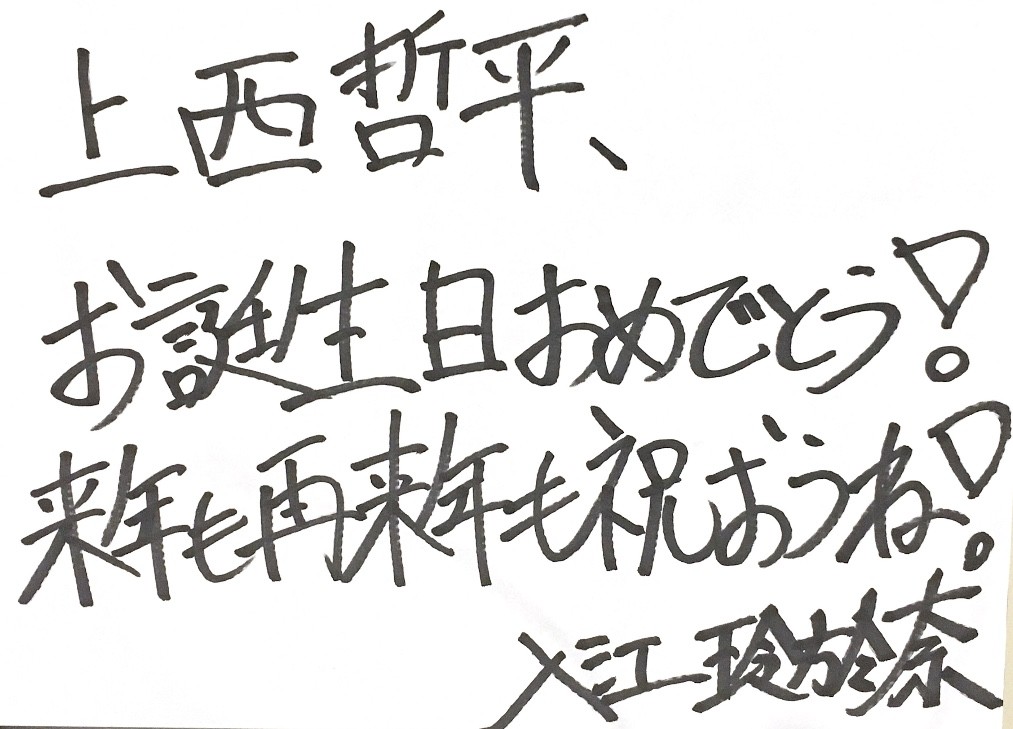 上西哲平、
お誕生日おめでとう!
来年も再来年も祝おうね!
入江玲於奈